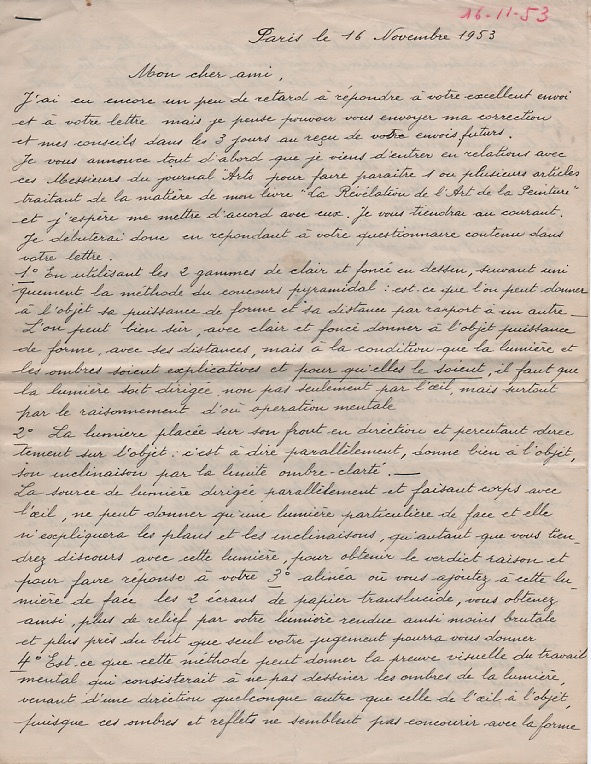 16-11-53
Paris le 16 Novembre 1953
Mon cher ami,
J'ai eu encore un peu de retard à répondre à votre excellent envoi
et à votre lettre mais je pense pouvoir vous envoyer ma correction
et mes conseils dans les 3 jours au reçu de votre envois futurs.
Je vous annonce tout d'abord que je viens d'entrer en relations avec
ces Messieurs du journal Arts pour faire paraitre 1 ou plusieurs articles
traitant de la matière de mon livre "La Révélation de l'Art de la Peinture"
et j'espère me mettre d'accord avec eux. Je vous tiendrai au courant.
Je débuterai donc en repondant à votre questionnaire contenu dans
votre lettre.
1° En utilisant les 2 gammes de clair et foncé en dessin, suivant uni
quement la méthode du concours pyramidal : est-ce que l'on peut donner
à l'objet sa puissance de forme et sa distance par raxport à un autre_
L'on peut bien sûr, avec clair et foncé donner à l'objet puissance
de forme, avec ses distances, mais à la condition que la lumière et
les ombres soient explicatives et pour qu'elles le soient, il faut que
la lumière soit dirigée non pas seulement par l'œil, mais surtout
par le raisonnement d'où operation mentale
2° La lumiere placée sur son front en direction et percutant direc
tement sur l'objet : c'est à dire parallèlement, donne bien à l'objet,
son inclinaison par la limite ombre-clarté._
La source de lumière dirigée parallèlement et faisant corps avec
l'œil, ne peut donner qu'une lumière particulière de face et elle
n'expliquera les plans et les inclinaisons, qu'autant que vous tien-
drez discours avec cette lumière, pour obtenir le verdict raison et
pour faire réponse à votre 3° alinéa où vous ajoutez à cette lu-
mière de face les 2 écrans de papier translucide, vous obtenez
ainsi, plus de relief par votre lumière rendue ainsi moins brutale
et plus près du but que seul votre jugement pourra vous donner
4° Est-ce que cette méthode peut donner la preuve visuelle du travail
mental qui consisterait à ne pas dessiner les ombres de la lumière,
venant d'une direction quelconque autre que celle de l'œil à l'objet,
puisque ces ombres et reflets ne semblent pas concourir avec la forme